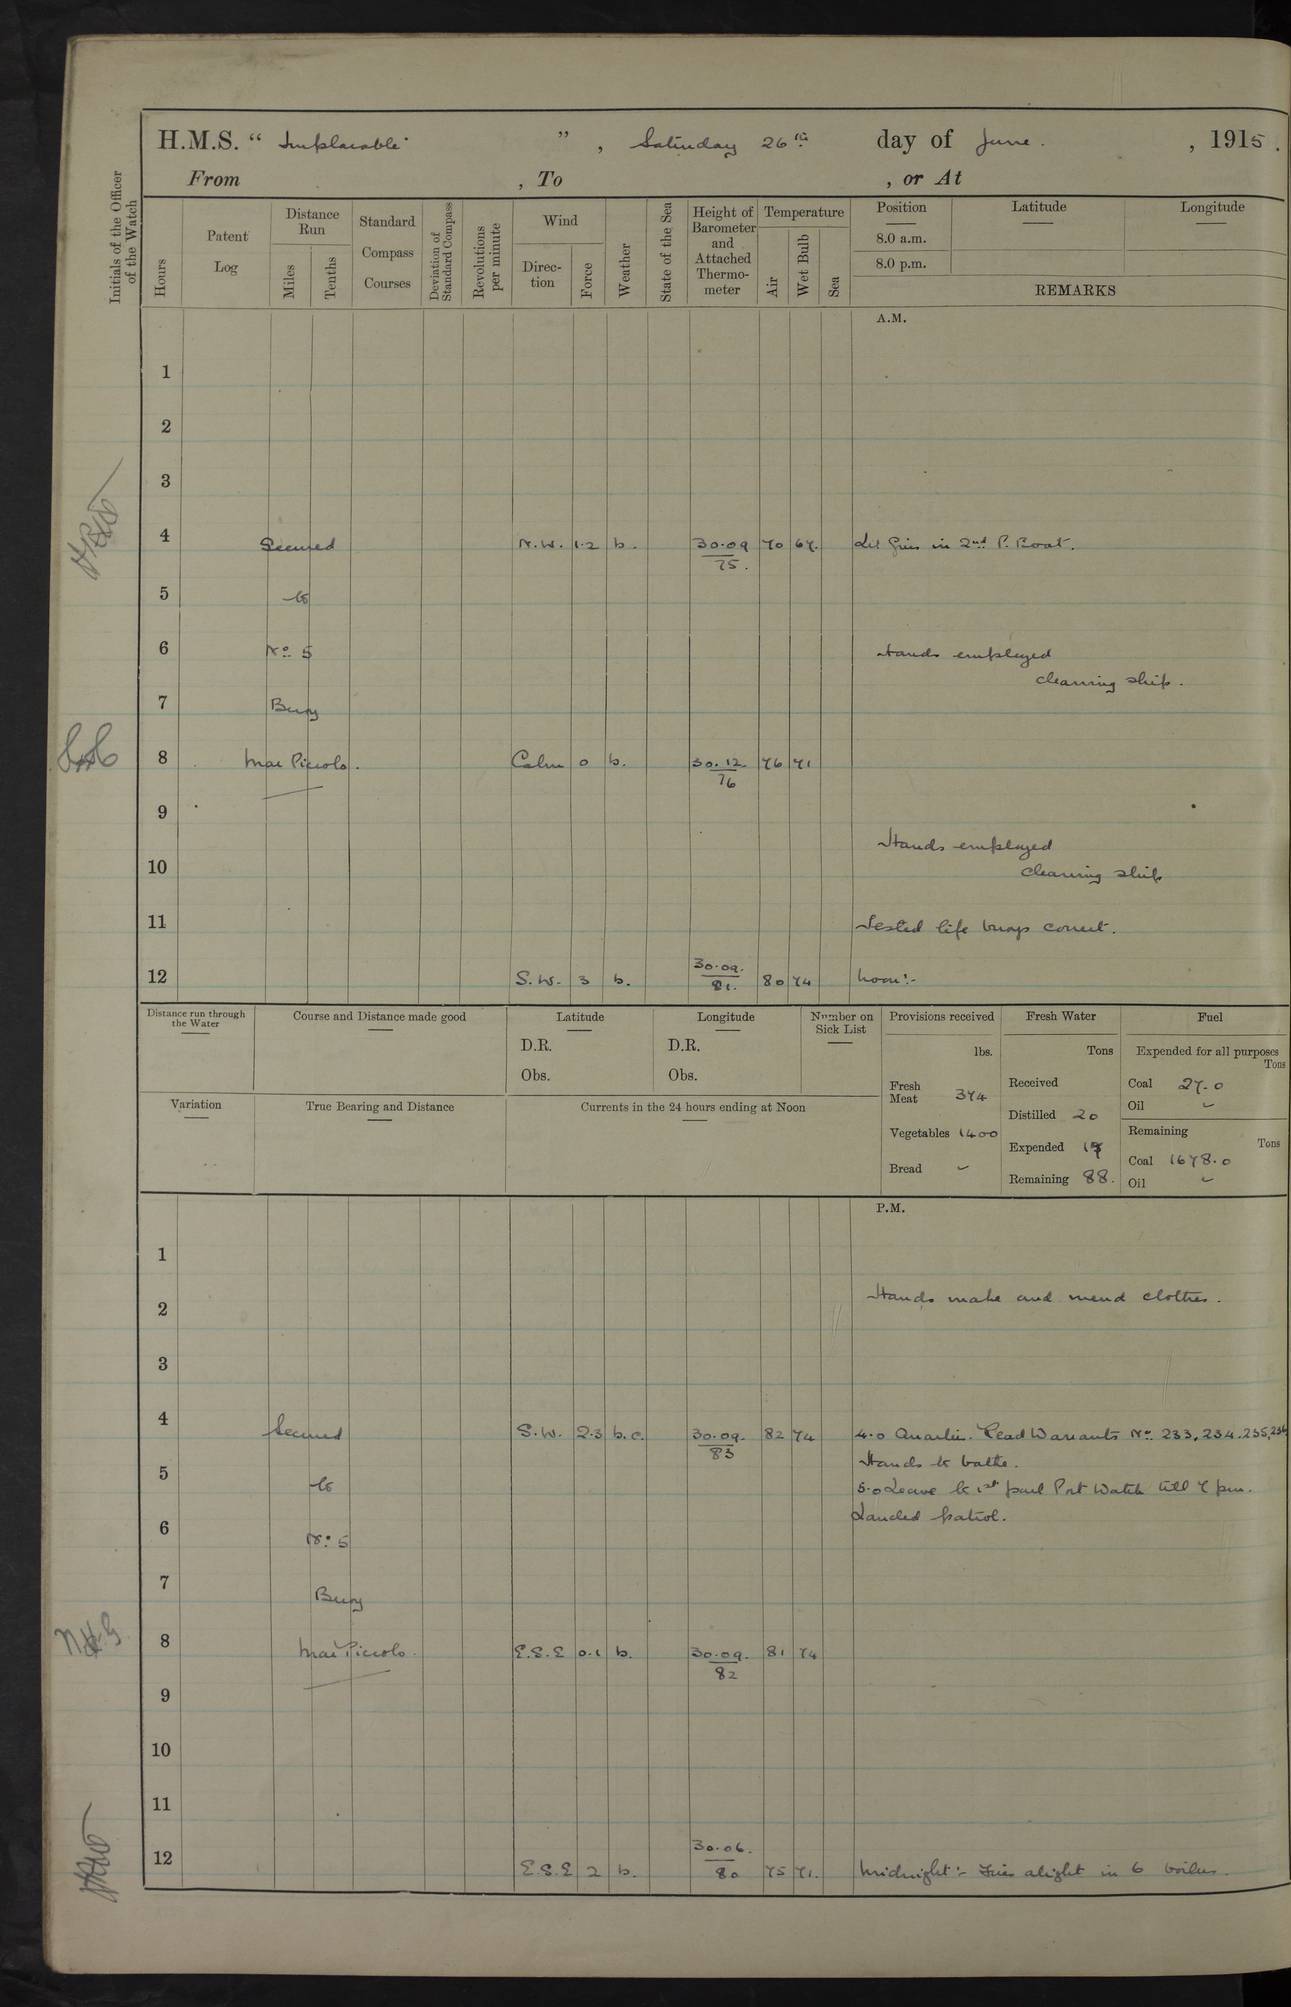 H.M.S. “ Implacable ” , Saturday 26th day of June . , 1915 .
From , To , or At
Initials of the Officer of the Watch
Hours
Patent Log
Distance Run
Miles
Tenths
Standard Compass Courses
Deviation of Standard Compass
Revolutions per minute
Wind
Direc-tion
Force
Weather
State of the Sea
Height of Barometer and Attached Thermo-meter
Temperature
Air
Wet Bulb
Sea
Position
8.0 a.m.
8.0 p.m.
Latitude
Longitude
REMARKS
A.M.
1
2
3
4 Secured N.W. 1.2 b. 30.09 / 75. 70 67. Lit fires in 2nd P. Boat.
5 to
6 No. 5 Hands employed
cleaning ship.
7 Buoy
8 Mar Piccolo. Calm 0 b. 30.12. / 76 76 71
9
Hands employed
10 cleaning ship
11 Tested life buoys correct.
12 S.W. 3 b. 30.09. / 81. 80 74 Noon:-
Distance run through the Water
Course and Distance made good
Latitude
D.R.
Obs.
Longitude
D.R.
Obs.
Number on Sick List
Provisions received
lbs.
Fresh Meat 374
Vegetables 1400
Bread -
Fresh Water
Tons
Received
Distilled 20
Expended
Remaining 88.
Fuel
Expended for all purposes
Tons
Coal 27.0
Oil -
Remaining
Tons
Coal 1678.0
Oil -
Variation
True Bearing and Distance
Currents in the 24 hours ending at Noon
P.M.
1
Hands make and mend clothes.
2
3
4 Secured S.W. 2.3 b.c. 30.09. / 83 82 74 4.0 Quarters. Read Warrants No. 233, 234. 235, 236
Hands to bathe.
5 to 5.0 Leave to 1st part Port Watch till 7 pm.
Landed patrol.
6 No. 5
7 Buoy
8 Mar Piccolo. E.S.E 0.1 b. 30.09. / 82 81 74
9
10
11
12 E.S.E 2 b. 30.06. / 80 75 71. Midnight:- Fires alight in 6 boilers.